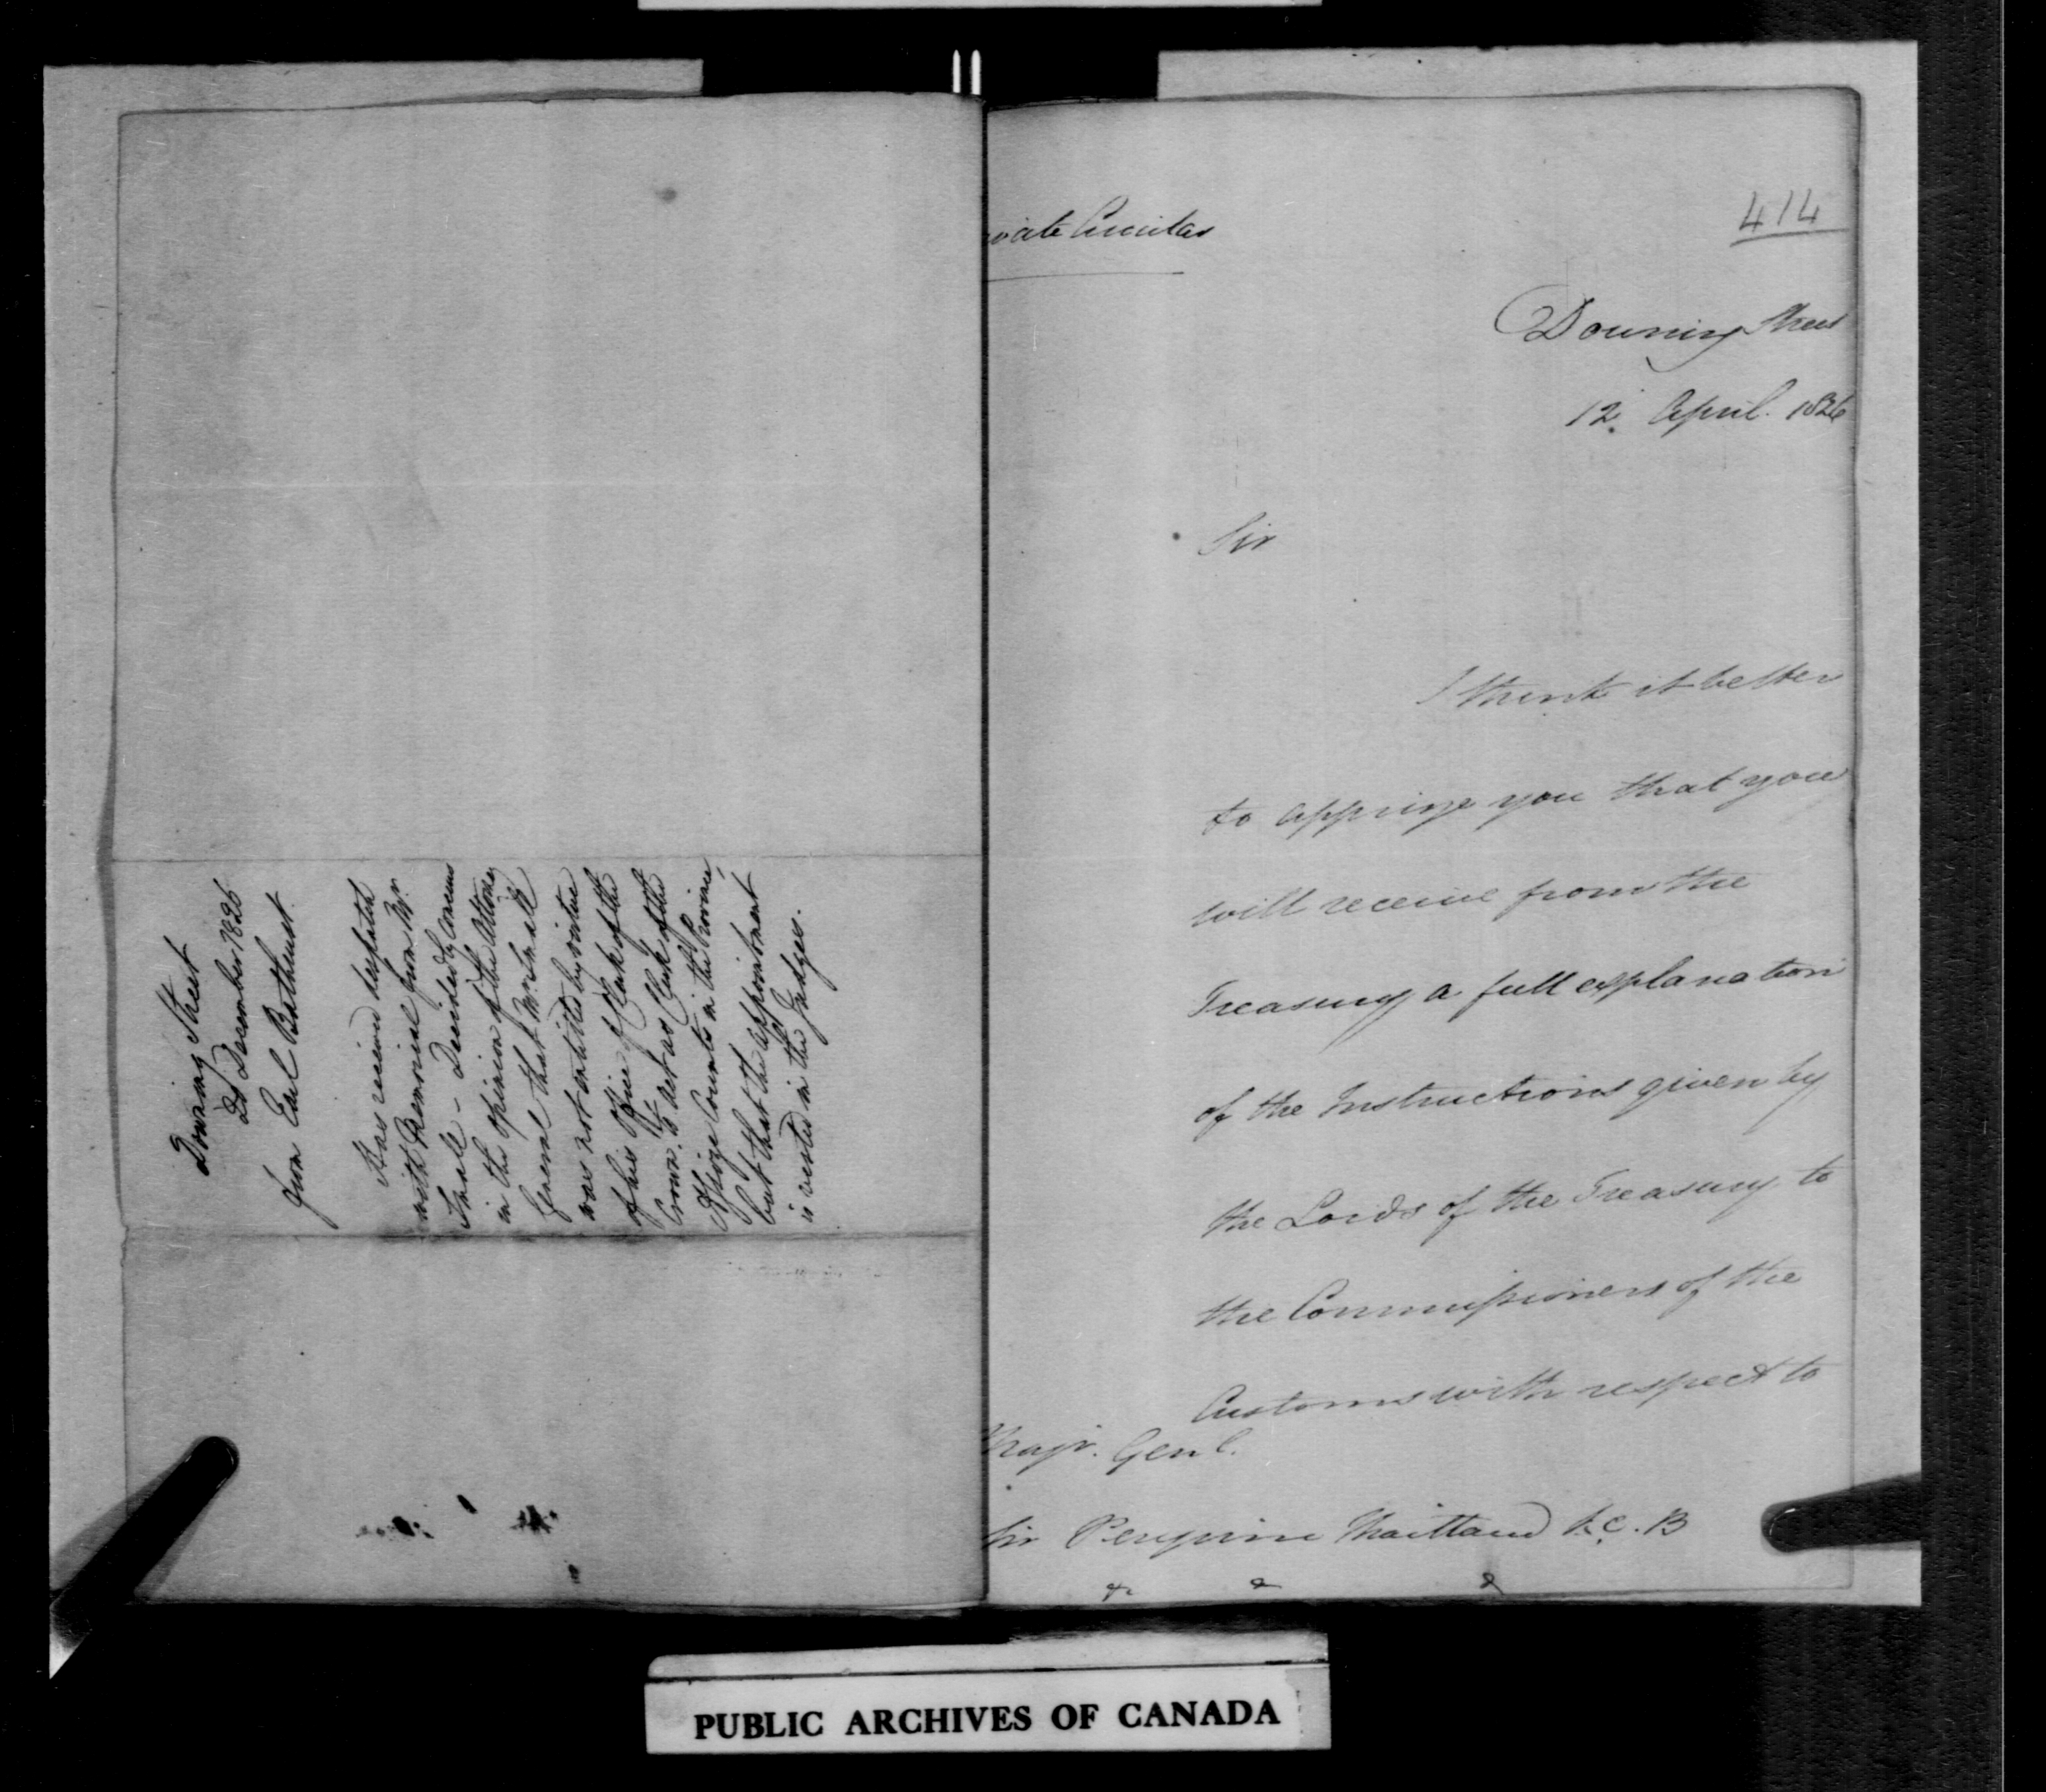 Downing Street
20 December 1826
from Earl Bathurst
Has received despatch
with Memorial from Mr.
Small - Decidedly concurs
in the opinion of the Attorney
General that Mr. Small
was not entitled by virtue
of his Office of Clerk of the
Crown to act as Clerk of the
Assize Courts in the Province,
but that the appointment
is vested in the Judges.
ivate Circular
414
Downing Street
12 April. 1826
Sir
I think it better
to apprize you that you
will receive from the
Treasury a full explanation
of the Instructions given by
the Lords of the Treasury to
the Commissioners of the
Customs with respect to
Majr. Genl.
Sir Peregrine Maitland K.C.B
& & &
PUBLIC ARCHIVES OF CANADA